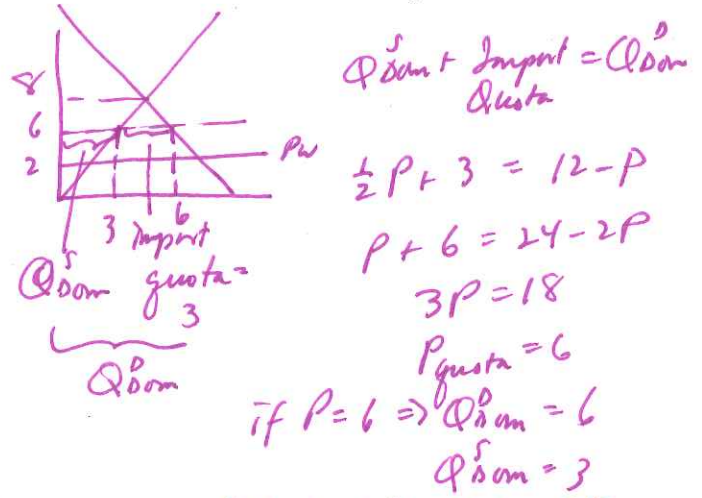 8
6
2
Pw
3 6
import
Q^S_Dom quota =
3
Q^D_Dom
Q^S_Dom + Import = Q^D_Dom
Quota
1/2 P + 3 = 12 - P
P + 6 = 24 - 2P
3P = 18
P_quota = 6
if P = 6 => Q^D_Dom = 6
Q^S_Dom = 3